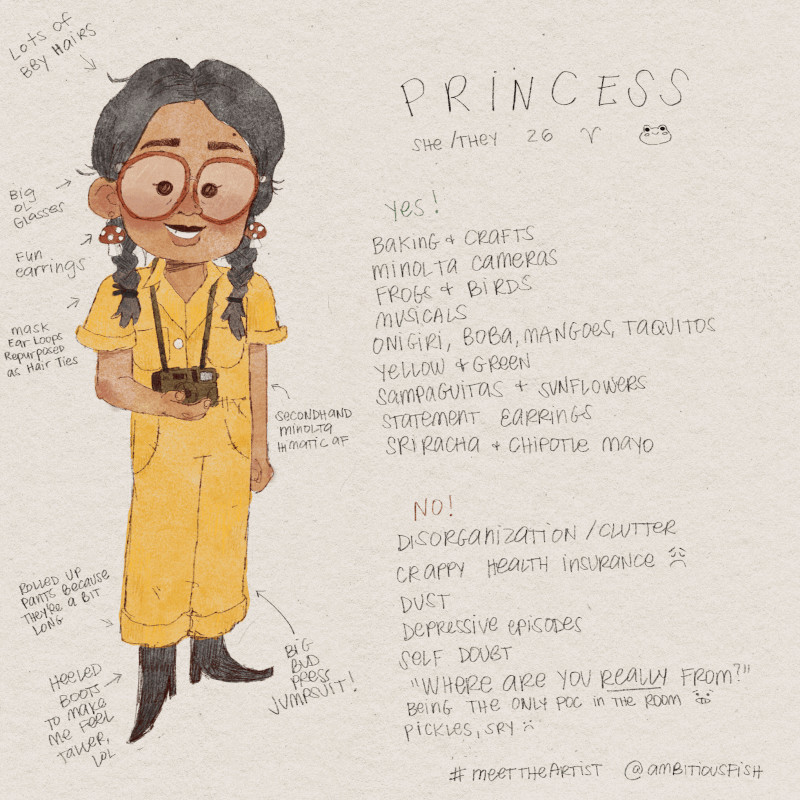 Lots of
BBY Hairs
Big
OL
Glasses
Fun
earrings
mask
Ear Loops
Repurposed
as Hair Ties
SECONDHAND
MINOLTA
HIMATIC AF
ROLLED UP
PANTS BECAUSE
THEY'RE A BIT
LONG
HEELED
BOOTS
TO MAKE
ME FEEL
TALLER,
LOL
BIG
BUD
PRESS
JUMPSUIT!
PRINCESS
SHE/THEY 26 ♈
YES!
BAKING + CRAFTS
MINOLTA CAMERAS
FROGS & BIRDS
MUSICALS
ONIGIRI, BOBA, MANGOES, TAQUITOS
YELLOW & GREEN
SAMPAGUITAS + SUNFLOWERS
STATEMENT EARRINGS
SRIRACHA + CHIPOTLE MAYO
NO!
DISORGANIZATION / CLUTTER
CRAPPY HEALTH INSURANCE
DUST
DEPRESSIVE EPISODES
SELF DOUBT
"WHERE ARE YOU REALLY FROM?"
BEING THE ONLY POC IN THE ROOM
PICKLES, SRY
#MEETTHEARTIST @AMBITIOUSFISH